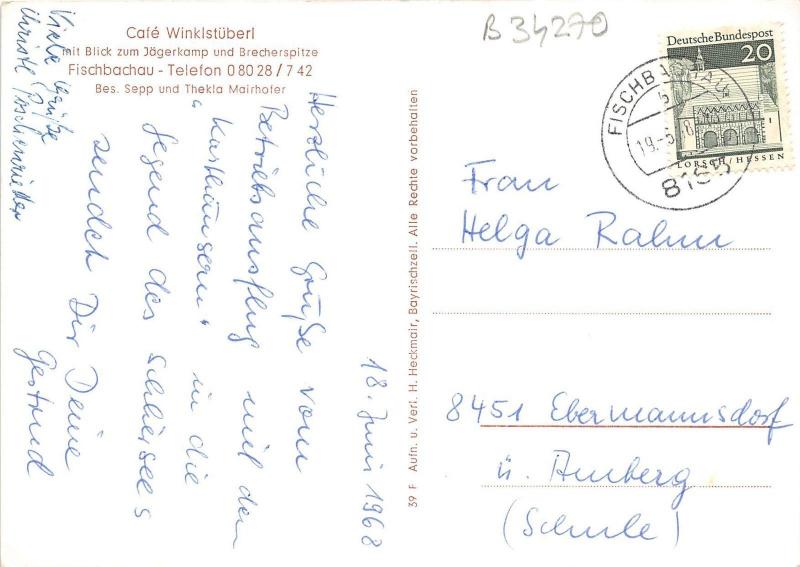 Café Winklstüberl
mit Blick zum Jägerkamp und Brecherspitze
Fischbachau - Telefon 0 80 28 / 7 42
Bes. Sepp und Thekla Mairhofer
B 34270
Deutsche Bundespost
20
LORSCH/HESSEN
FISCHBACHAU
b
19.-6.
8165
18. Juni 1968
Herzliche Grüße vom
Betriebsausflug mit den
"Karthäusern" in die
Gegend des Schliersees
sendet Dir Deine
Gertrud
Viele Grüße
Christl
39 F Aufn. u. Verl. H. Heckmair, Bayrischzell. Alle Rechte vorbehalten
Frau
Helga Rahm
8451 Ebermannsdorf
ü. Amberg
(Schule)